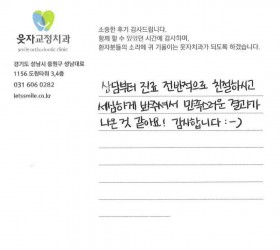 웃자교정치과
소중한 후기 감사드립니다.
함께 할 수 있었던 시간에 감사하며,
환자분들의 소리에 귀 기울이는 웃자치과가 되도록 하겠습니다.
경기도 성남시 중원구 성남대로
1156 도원타워 3,4층
031 606 0282
letssmile.co.kr
상담부터 진료 전반적으로 친절하시고
세심하게 봐주셔서 만족스러운 결과가
나온 것 같아요! 감사합니다 :-)